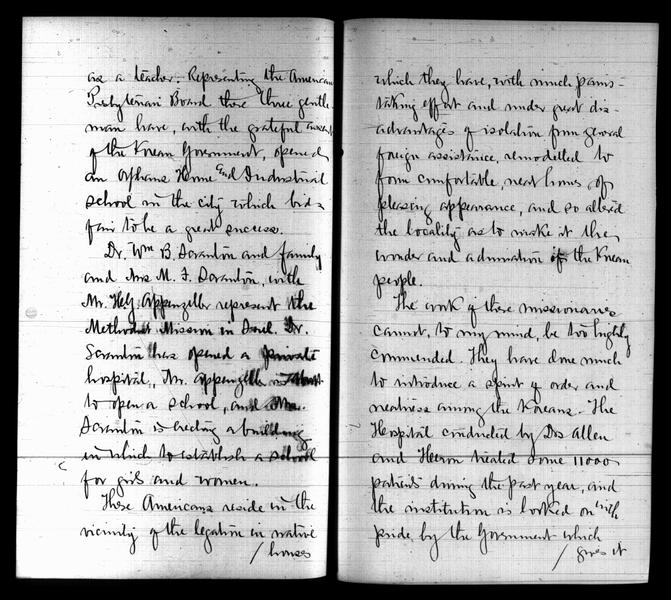 as a teacher. Representing the American
Presbyterian Board these three gentle-
man have, with the grateful assent
of the Korean Government, opened
an Orphans Home and Industrial
school in the city which bids
fair to be a great success.
Dr. Wm B. Scranton and family
and Mrs M. F. Scranton, with
Mr. H. G. Appenzeller represent the
Methodist Mission in Seoul. Dr.
Scranton has opened a private
hospital, Mr. Appenzeller is about
to open a school, and Mrs.
Scranton is erecting a building
in which to establish a school
for girls and women.
These Americans reside in the
vicinity of the legation in native
/ houses
which they have, with much pains-
taking effort and under great dis-
advantages of isolation from general
foreign assistance, remodelled to
form comfortable, neat homes, of
pleasing appearance, and so altered
the locality as to make it the
wonder and admiration of the Korean
people.
The work of these missionaries
cannot, to my mind, be too highly
commended. They have done much
to introduce a spirit of order and
neatness among the Koreans. The
Hospital conducted by Drs Allen
and Heron treated some 11000
patients during the past year, and
the institution is looked on with
pride by the Government which
/ gives it